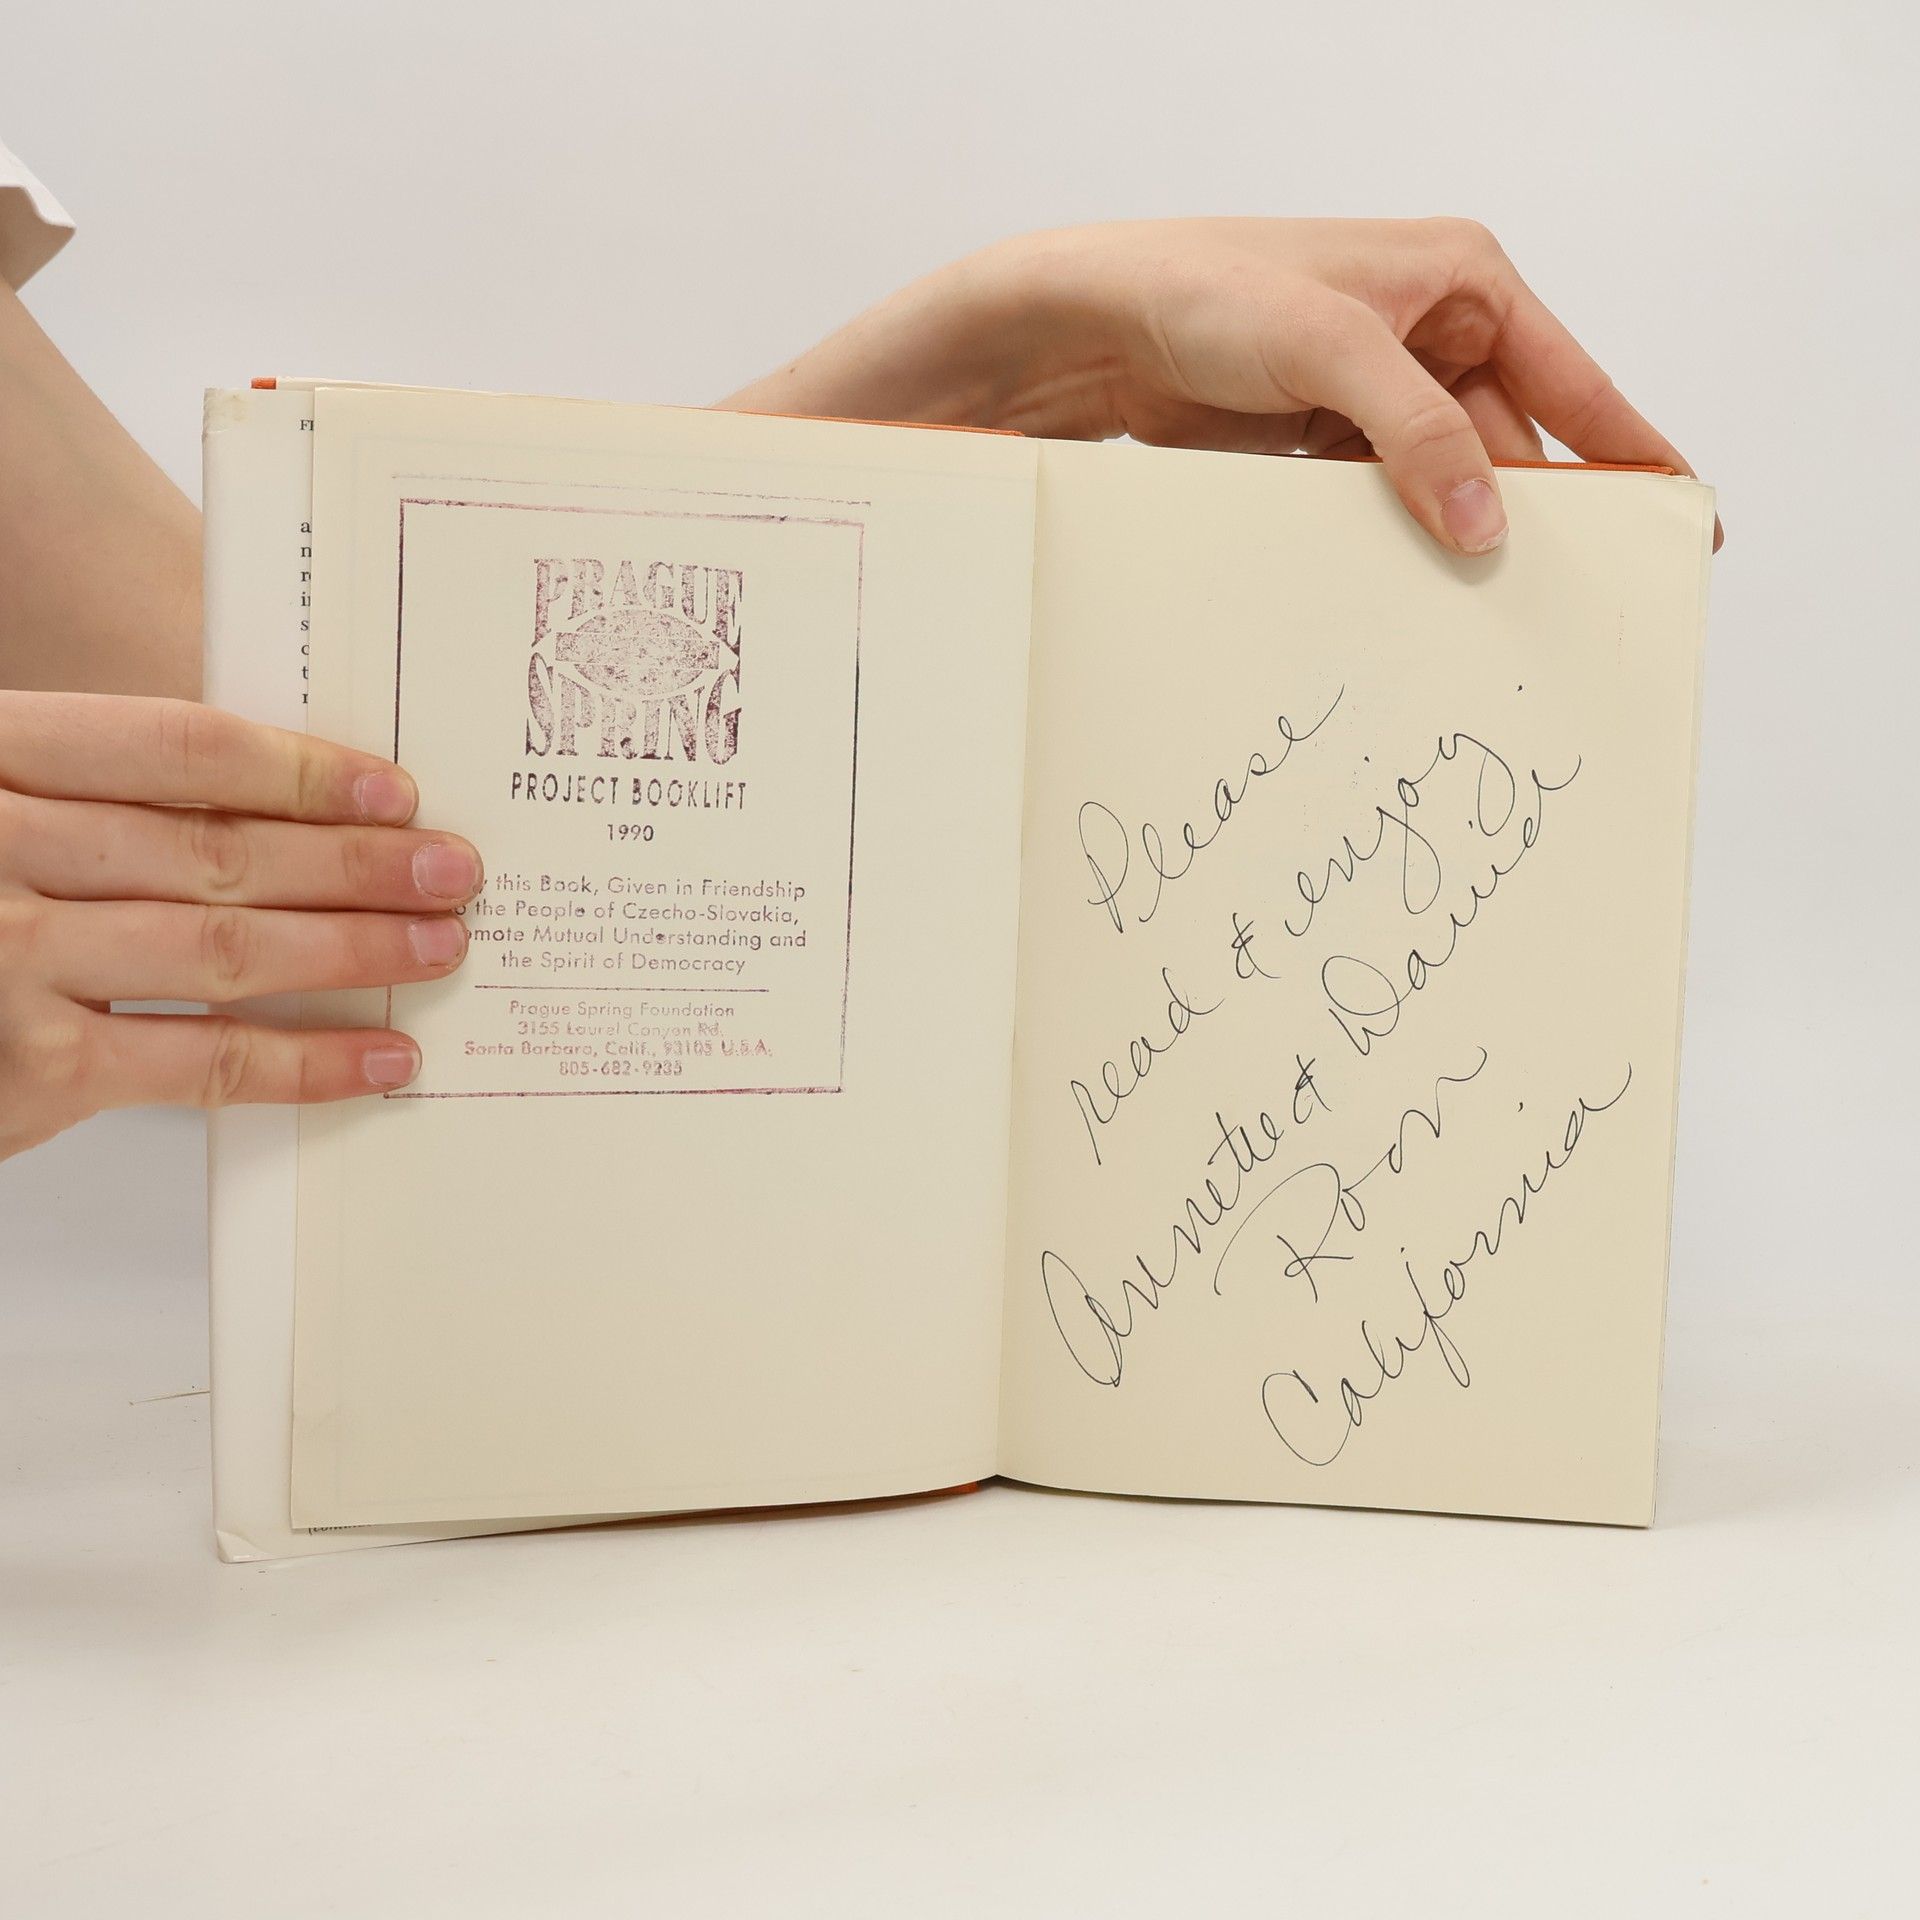 FI
a
n
s
PRAGUE
SPRING
PROJECT BOOKLIFT
1990
this Book, Given in Friendship
the People of Czecho-Slovakia,
omote Mutual Understanding and
the Spirit of Democracy
Prague Spring Foundation
3155 Laurel Canyon Rd.
Santa Barbara, Calif., 93105 U.S.A.
805-682-9235
Please
read & enjoy.
Annette &
Roon
California